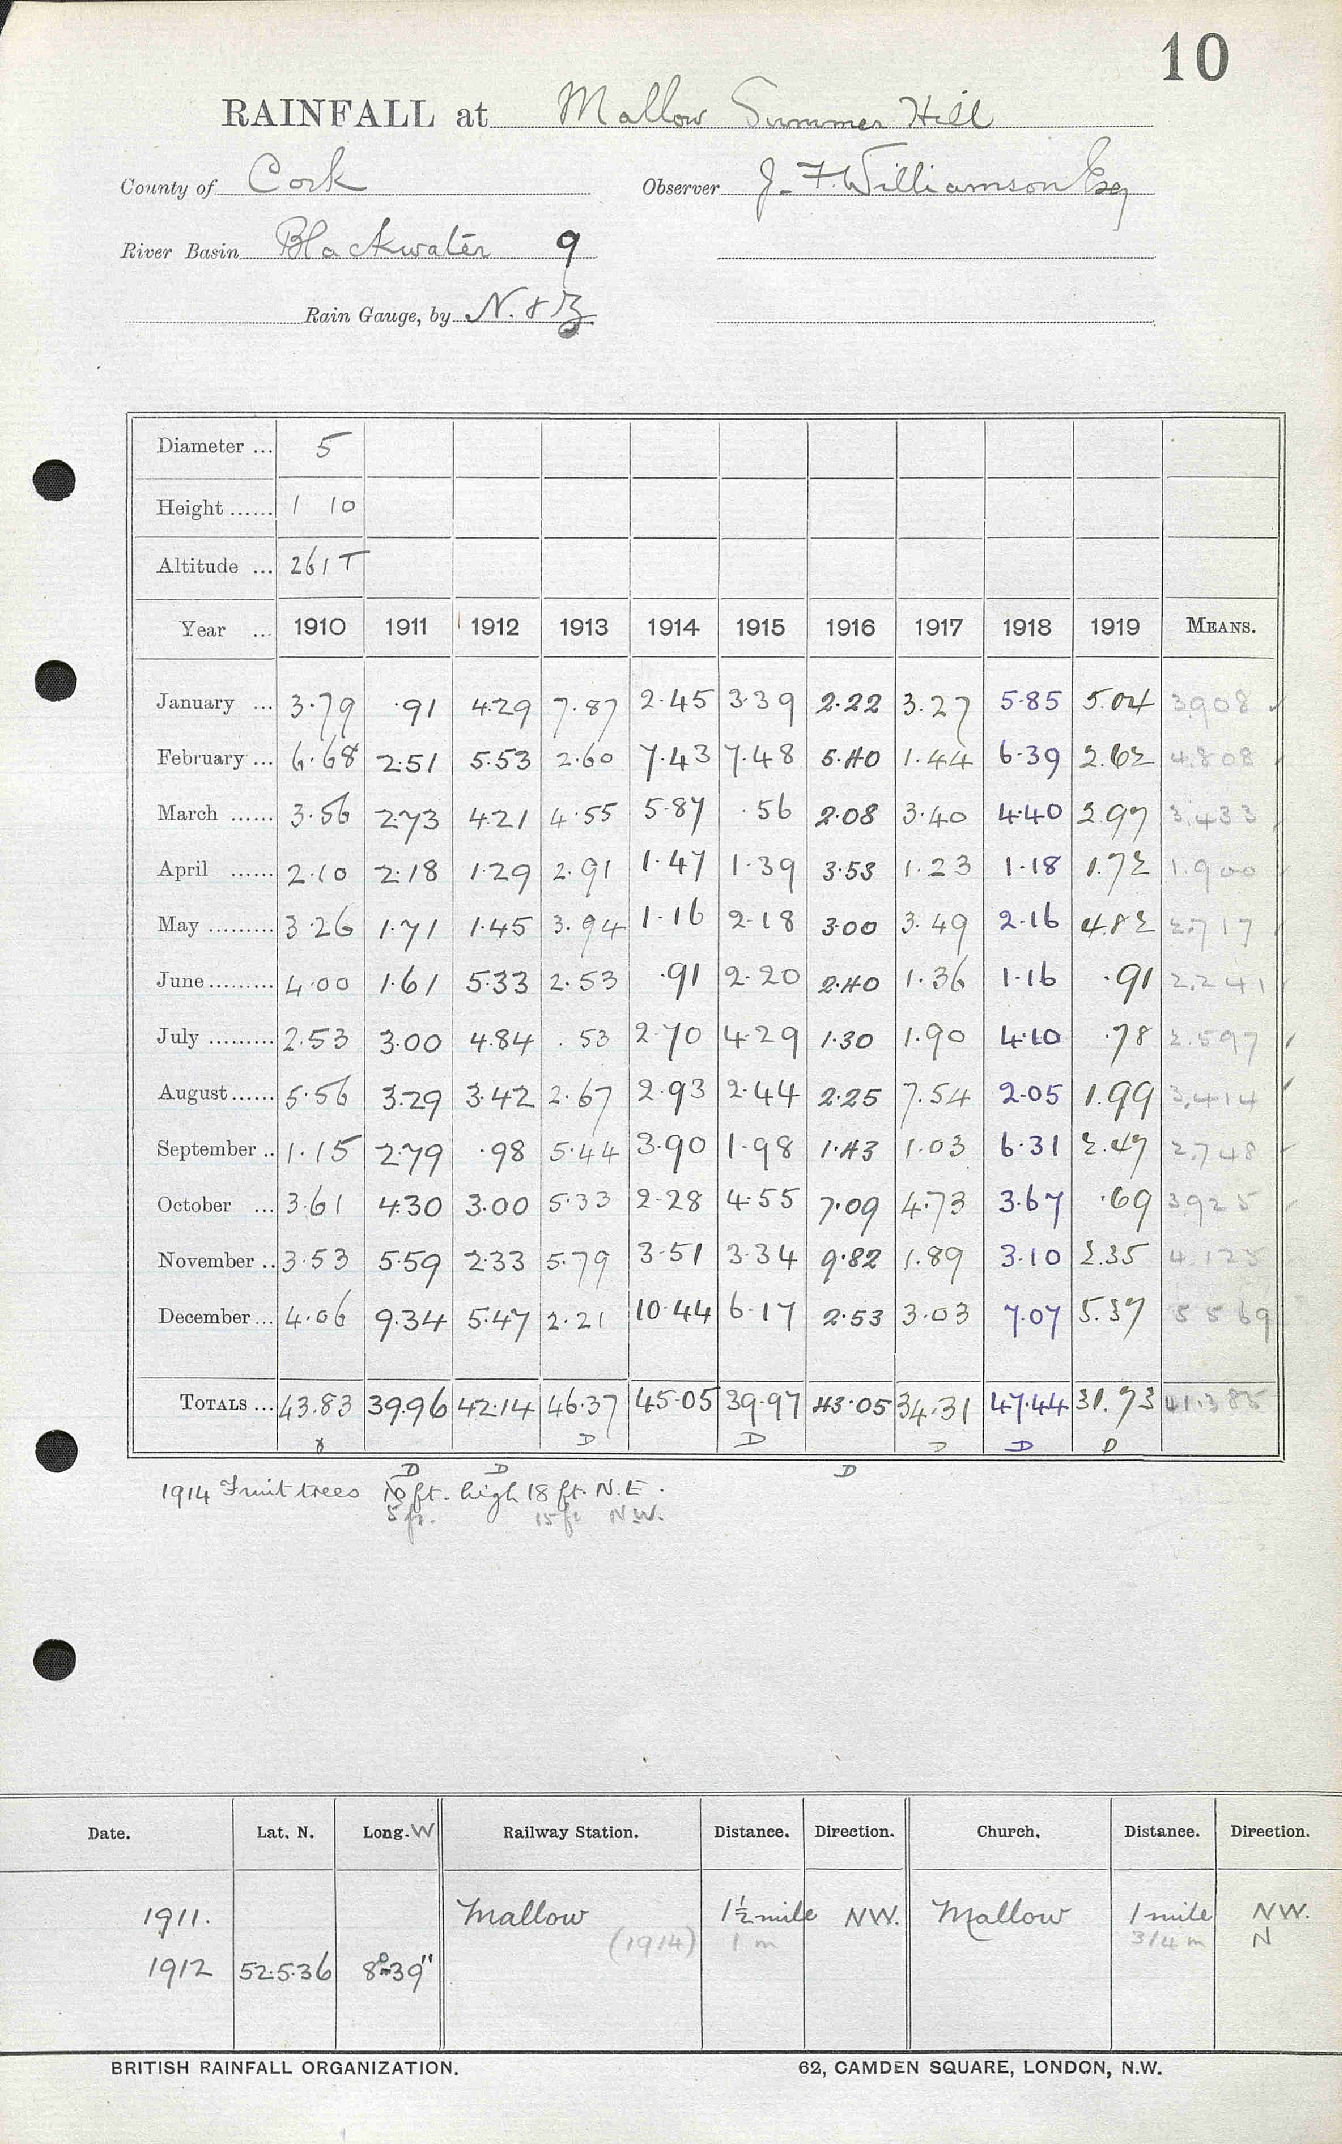 10
RAINFALL at Mallow Summer Hill
County of Cork Observer J. F. Williamson Esq
River Basin Blackwater 9
Rain Gauge, by N. & Z
Diameter ... 5
Height ...... 1 10
Altitude ... 261 T
Year ... 1910 1911 1912 1913 1914 1915 1916 1917 1918 1919 MEANS.
January ... 3.79 .91 4.29 7.87 2.45 3.39 2.22 3.27 5.85 5.04 3.908
February ... 6.68 2.51 5.53 2.60 7.43 7.48 5.40 1.44 6.39 2.62 4.808
March ...... 3.56 2.73 4.21 4.55 5.87 .56 2.08 3.40 4.40 2.97 3.433
April ...... 2.10 2.18 1.29 2.91 1.47 1.39 3.53 1.23 1.18 1.72 1.900
May ......... 3.26 1.71 1.45 3.94 1.16 2.18 3.00 3.49 2.16 4.82 2.717
June ......... 4.00 1.61 5.33 2.53 .91 2.20 2.40 1.36 1.16 .91 2.241
July ......... 2.53 3.00 4.84 .53 2.70 4.29 1.30 1.90 4.10 .78 2.597
August ...... 5.56 3.29 3.42 2.67 2.93 2.44 2.25 7.54 2.05 1.99 3.414
September .. 1.15 2.79 .98 5.44 3.90 1.98 1.43 1.03 6.31 2.47 2.748
October ... 3.61 4.30 3.00 5.33 2.28 4.55 7.09 4.73 3.67 .69 3.925
November .. 3.53 5.59 2.33 5.79 3.51 3.34 9.82 1.89 3.10 2.35 4.125
December ... 4.06 9.34 5.47 2.21 10.44 6.17 2.53 3.03 7.07 5.37 5.569
TOTALS ... 43.83 39.96 42.14 46.37 45.05 39.97 43.05 34.31 47.44 31.73 41.385
D D D D D
D D D
1914 Fruit trees 10 ft. high 18 ft. N.E.
5 ft. 15 ft N.W.
Date. Lat. N. Long. W Railway Station. Distance. Direction. Church. Distance. Direction.
1911. Mallow 1½ mile NW. Mallow 1 mile NW.
(1914) 1 m 3/4 m N
1912 52.5.36 8°39"
BRITISH RAINFALL ORGANIZATION. 62, CAMDEN SQUARE, LONDON, N.W.